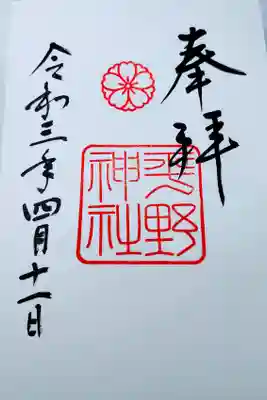 奉拝
野
神社
令和三年四月十一日